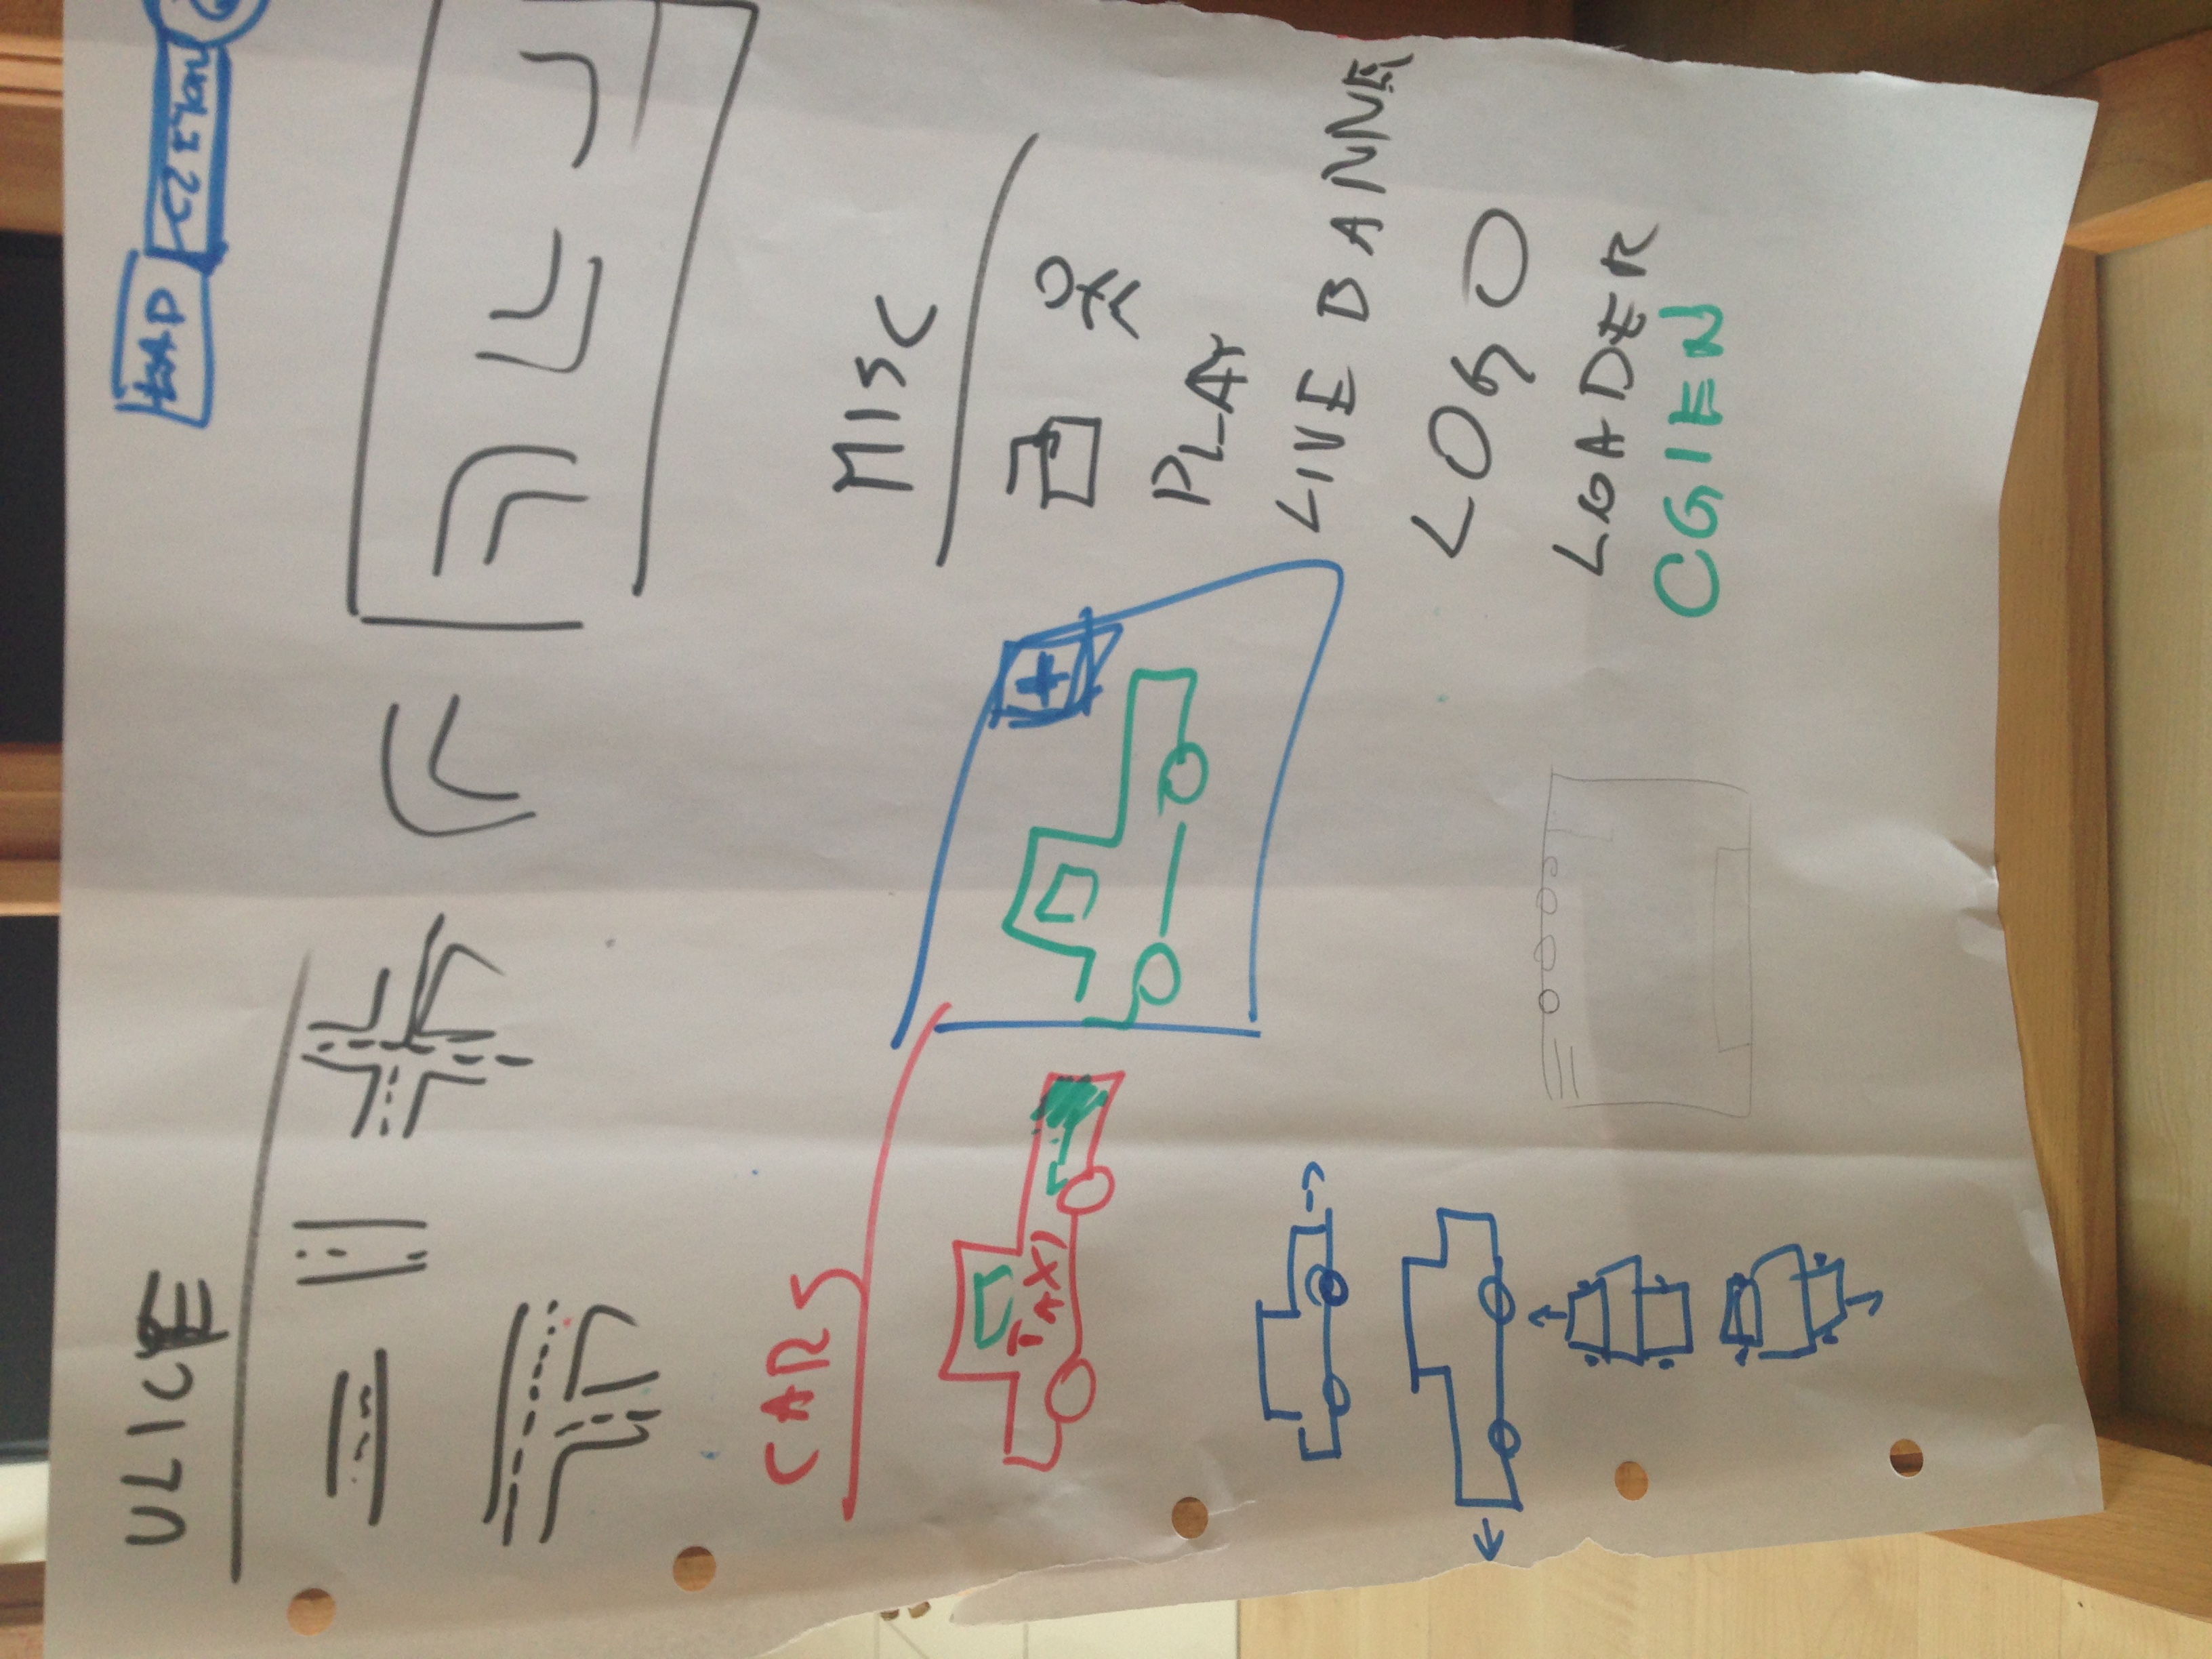 ULICE
CARS
TAXI
MISC
PLAY
LIVE BANNER
LOGO
LOADER
CGIEN